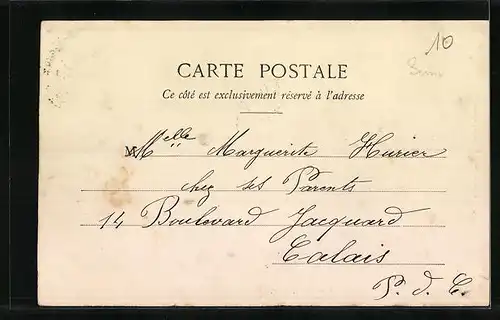 10
CARTE POSTALE
Ce côté est exclusivement réservé à l'adresse
M Melle Marguerite Hurier
chez ses Parents
14 Boulevard Jacquard
Calais
P. d. C.